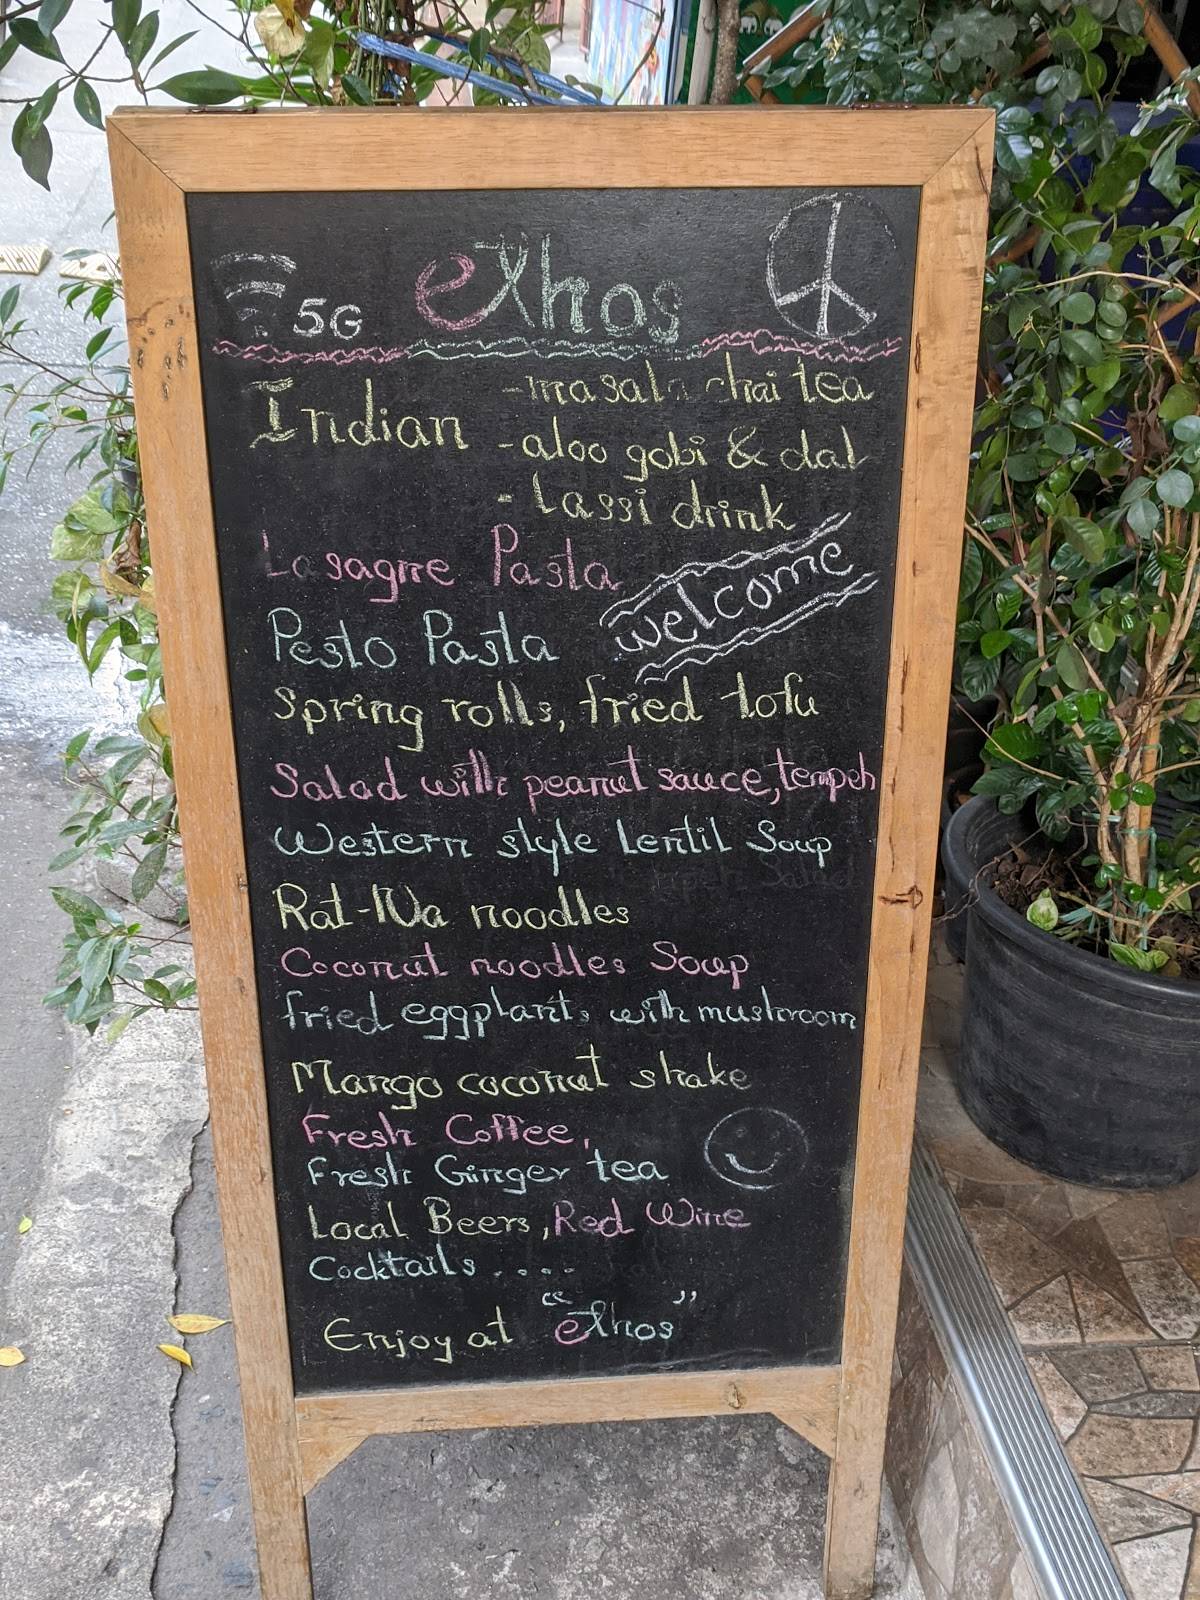 5G ethos
Indian - masala chai tea
- aloo gobi & dal
- Lassi drink
Lasagne Pasta
welcome
Pesto Pasta
Spring rolls, fried tofu
Salad with peanut sauce, tempeh
Western style Lentil Soup
Rat-Na noodles
Coconut noodles Soup
fried eggplants with mushroom
Mango coconut shake
Fresh Coffee,
Fresh Ginger tea
Local Beers, Red Wine
Cocktails ....
Enjoy at "ethos"